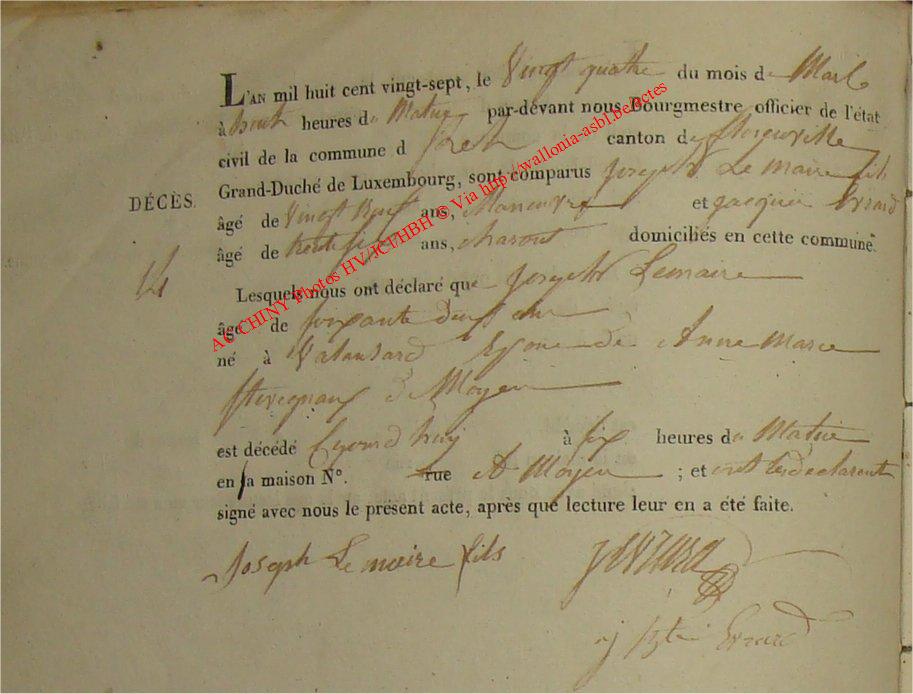 L'AN mil huit cent vingt-sept, le Vingt quatre du mois de Mars
à huit heures du Matin par-devant nous Bourgmestre officier de l'état
civil de la commune d canton de florenville
Grand-Duché de Luxembourg, sont comparus Joseph Le maire fils
DÉCÈS.
âgé de Vingt ans, Maneuvre et jacque Evrard
âgé de trente six ans, charont domiciliés en cette commune.
Lesquels nous ont déclaré que Joseph Lemaire
âgé de soixante deux ans
né à Valansard Epoux de Anne Marie
à Moyen
est décédé à six heures du Matin
en sa maison N°. rue A Moyen ; et ont les declarent
signé avec nous le présent acte, après que lecture leur en a été faite.
Joseph Le maire fils
j evrard
Evrard
AC CHINY Photos HV/JCI/HBH © Via http://wallonia-asbl.be/actes